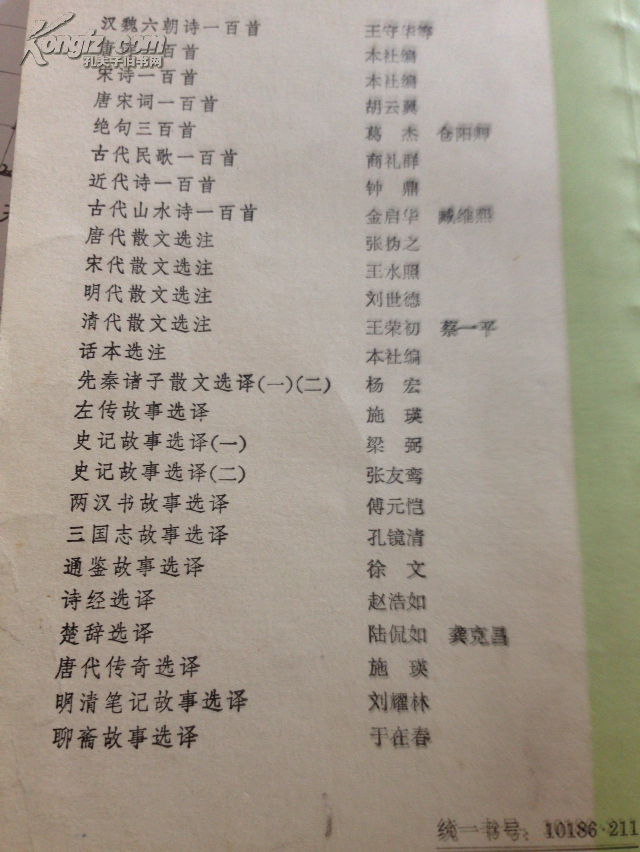 汉魏六朝诗一百首 王守华等
Kongfz.com
孔夫子旧书网
唐诗一百首 本社编
宋诗一百首 本社编
唐宋词一百首 胡云翼
绝句三百首 葛 杰 仓阳卿
古代民歌一百首 商礼群
近代诗一百首 钟 鼎
古代山水诗一百首 金启华 臧维熙
唐代散文选注 张㧑之
宋代散文选注 王水照
明代散文选注 刘世德
清代散文选注 王荣初 蔡一平
话本选注 本社编
先秦诸子散文选译(一)(二) 杨 宏
左传故事选译 施 瑛
史记故事选译(一) 梁 弼
史记故事选译(二) 张友鸾
两汉书故事选译 傅元恺
三国志故事选译 孔镜清
通鉴故事选译 徐 文
诗经选译 赵浩如
楚辞选译 陆侃如 龚克昌
唐代传奇选译 施 瑛
明清笔记故事选译 刘耀林
聊斋故事选译 于在春
统一书号：10186·211